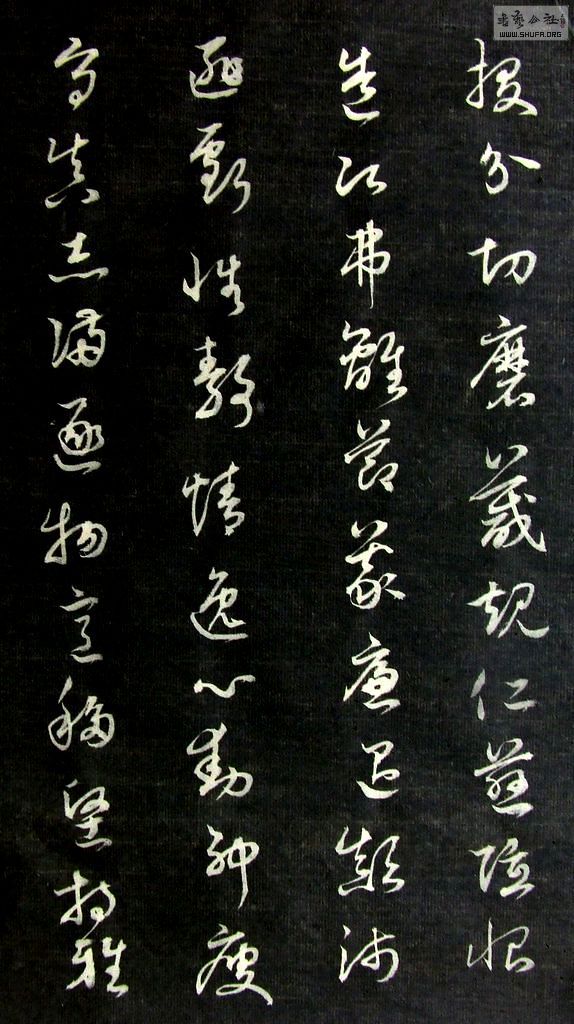 投分切磨箴規仁慈隱惻
造次弗離節義廉退顛沛
匪虧性靜情逸心動神疲
守真志滿逐物意移堅持雅
書藝公社
WWW.SHUFA.ORG